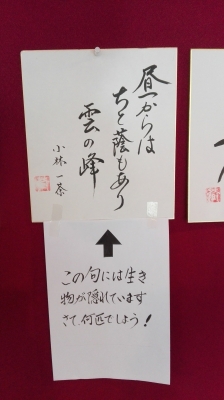 昼からは
ちと蔭もあり
雲の峰
小林一茶
この句には生き
物が隠れています
さて、何匹でしょう！